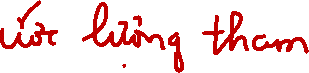 ước lượng tham